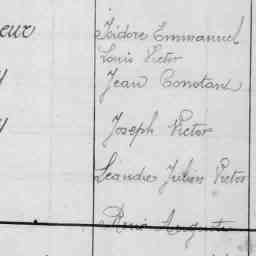 eur Isidore Emmanuel
Louis Victor
Jean Constant
Joseph Victor
Léandre Julien Victor
René Auguste